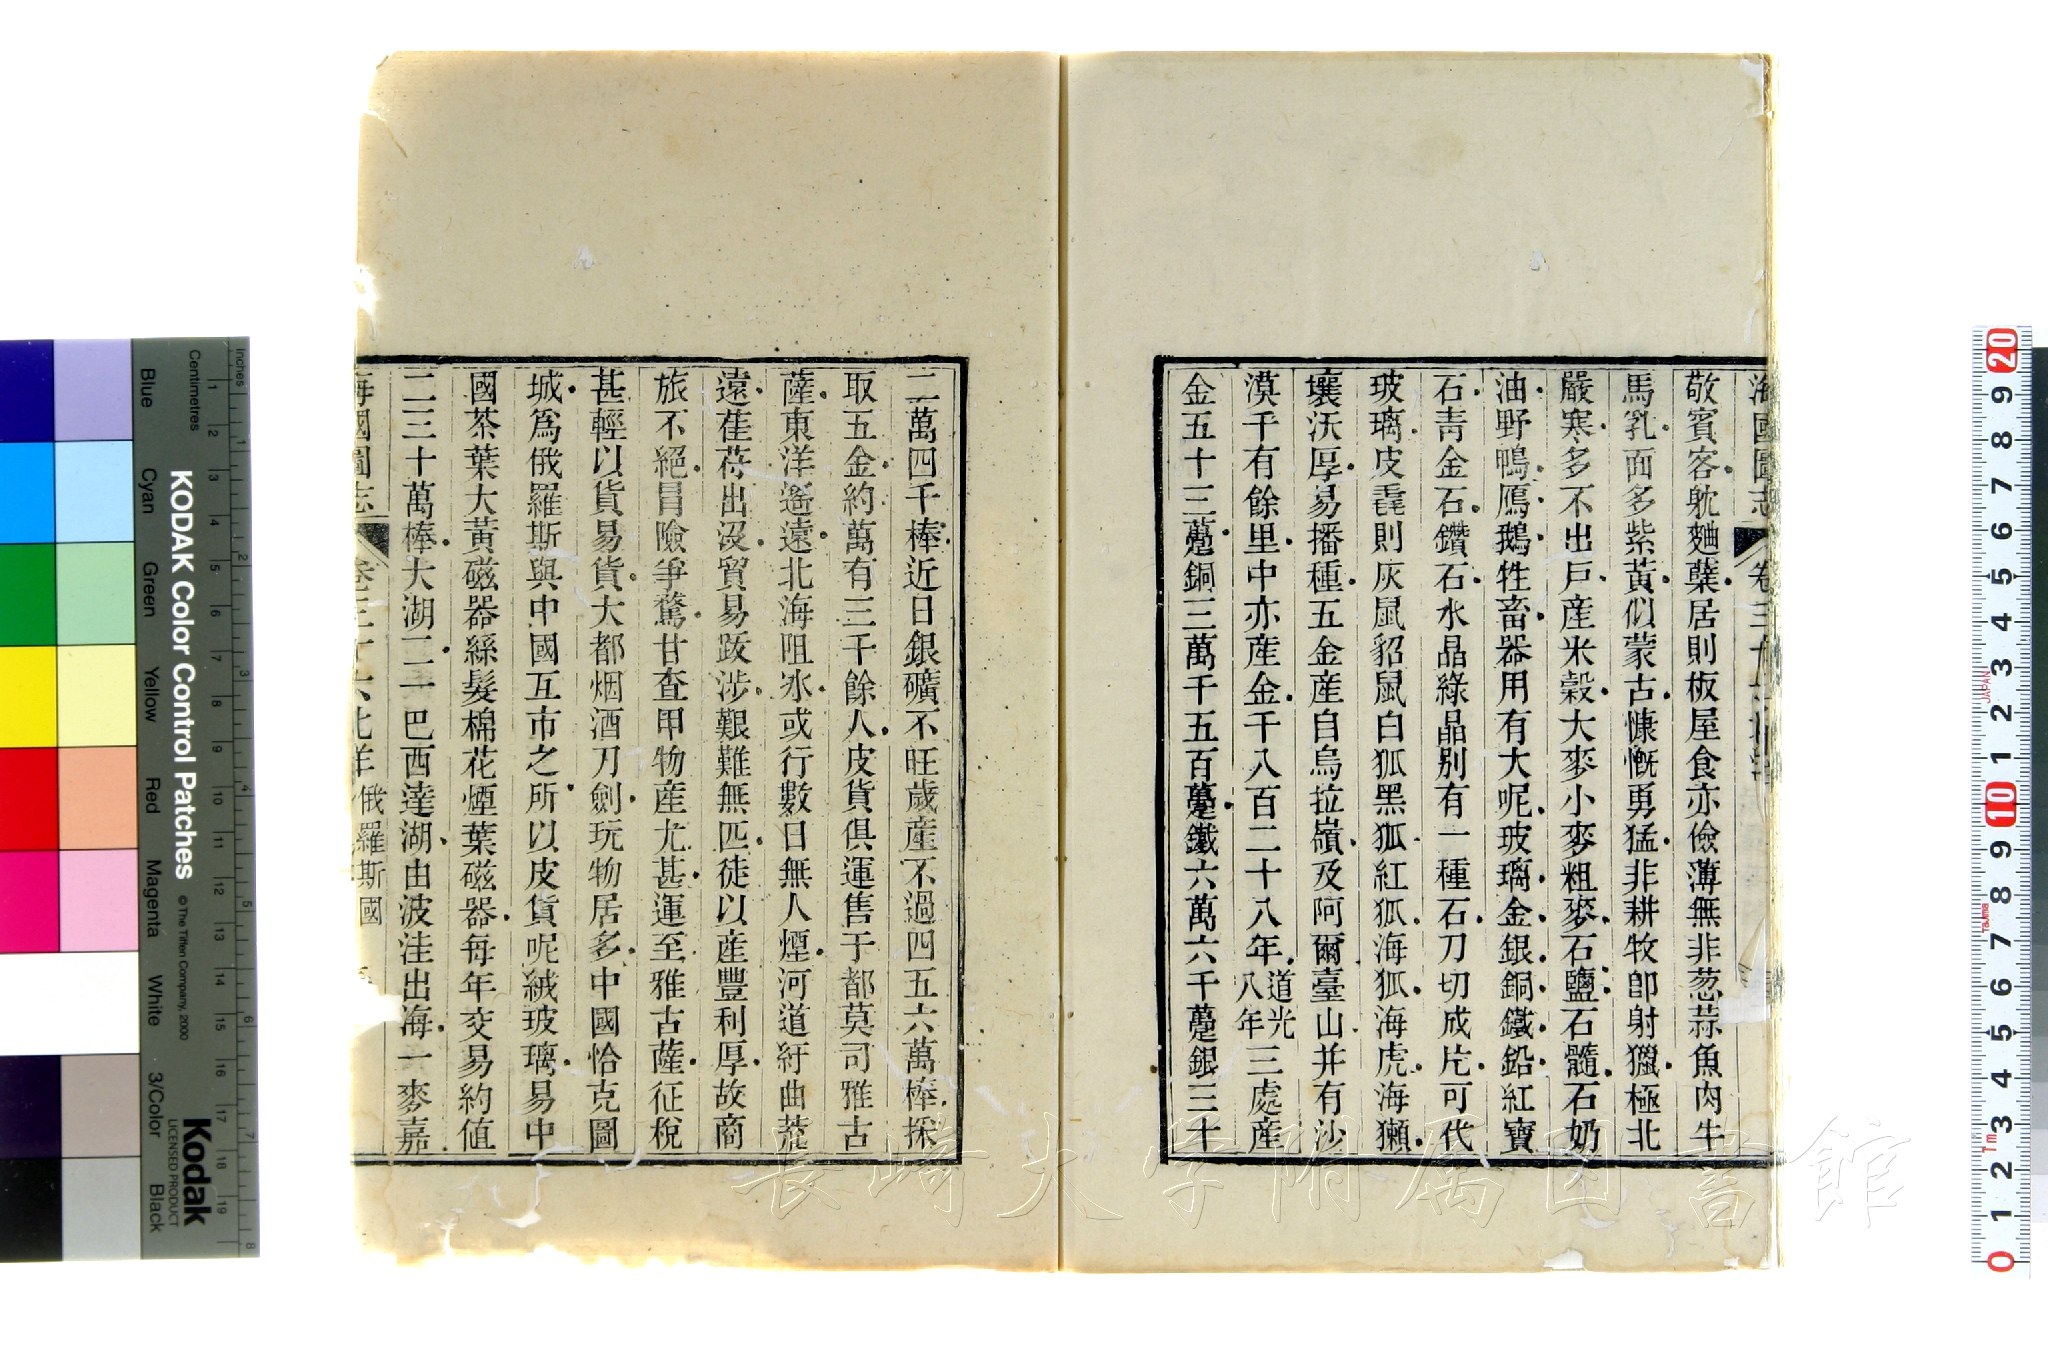 海國圖志
敬賓客躭麯蘖居則板屋食亦儉薄無非葱蒜魚肉牛
馬乳面多紫黃似蒙古慷慨勇猛非耕牧即射獵極北
嚴寒多不出戶產米穀大麥小麥粗麥石鹽石髓石奶
油野鴨鴈鵝牲畜器用有大呢玻璃金銀銅鐵鉛紅寶
石青金石鑽石水晶綠晶別有一種石刀切成片可代
玻璃皮毳則灰鼠貂鼠白狐黑狐紅狐海狐海虎海獺
壤沃厚易播種五金產自烏拉嶺及阿爾臺山并有沙
漠千有餘里中亦產金千八百二十八年道光八年三處產
金五十三躉銅三萬千五百躉鐵六萬六千躉銀三十
二萬四千棒近日銀礦不旺歲產不過四五六萬棒採
取五金約萬有三千餘人皮貨俱運售于都莫司雅古
薩東洋遙遠北海阻氷或行數日無人煙河道紆曲荒
遠萑苻出沒貿易跋涉艱難無匹徒以產豐利厚故商
旅不絕冒險爭騖甘查甲物產尤甚運至雅古薩征稅
甚輕以貨易貨大都烟酒刀劍玩物居多中國恰克圖
城為俄羅斯與中國互市之所以皮貨呢絨玻璃易中
國茶葉大黃磁器絲髮棉花煙葉磁器每年交易約值
二三十萬棒大湖二一巴西達湖由波洼出海一麥嘉
海國圖志 卷三十六 北洋 俄羅斯國
長崎大学附属図書館
KODAK Color Control Patches © The Tiffen Company, 2000
Kodak
LICENSED PRODUCT
Inches
Centimetres
Blue Cyan Green Yellow Red Magenta White 3/Color Black